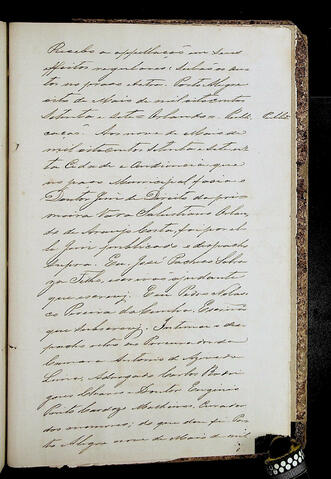 Recebo a appellação em seus
effeitos regulares: subão os au-
tos no praso . Porto Alegre
oito de Maio de mil oito centos
setenta e sete. Orlando. Publi-
cação. Aos nove de Maio de
mil oito centos setenta e sete nes-
ta Cidade e Audiencia que
no paço Municipal fasia o
Doutor Juiz de Direito da pri-
meira Vara Salustiano Orlan-
do de Araujo Costa, foi por el-
le Juiz publicado o despacho
supra. Eu José Pacheco
Filho, escrevente ajudante
que escrevi. E eu Pedro
Pereira da Escrivão
que subscrevi. Intimei o des-
pacho retro ao Procurador da
Camara Antonio de Azevedo
Lima, Advogado Carlos
e Doutor Eugenio
Pinto Cardoso Malheiros, Curador
dos menores; do que dou fé. Por-
to Alegre nove de Maio de mil